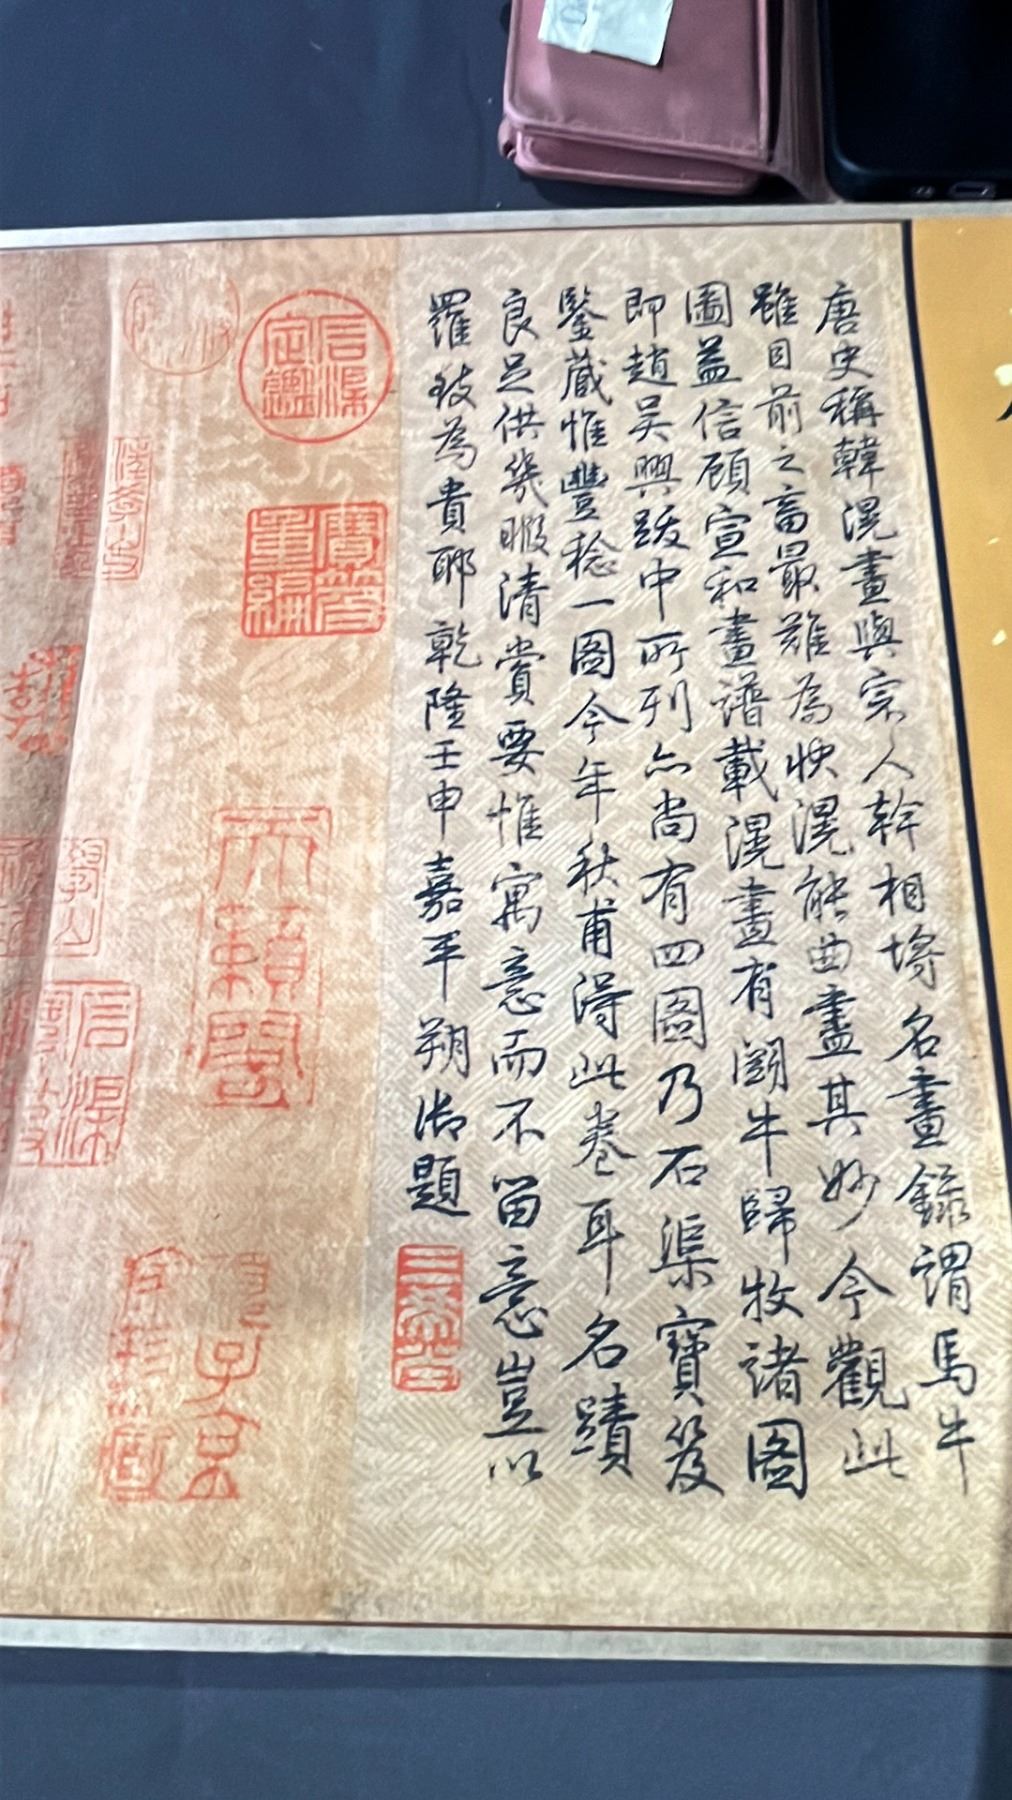 唐史稱韓滉畫與宗人幹相埒名畫錄謂馬牛
雖目前之畜最難為狀滉能曲盡其妙今觀此
圖益信顧宣和畫譜載滉畫有鬭牛歸牧諸圖
即趙吳興跋中所列亦尚有四圖乃石渠寶笈
鑒藏惟豐稔一圖今年秋甫得此卷耳名蹟
良足供幾暇清賞要惟寓意而不留意豈以
羅致為貴耶乾隆壬申嘉平朔御題
三希堂
石渠定鑑
寶笈重編
天籟閣
子京